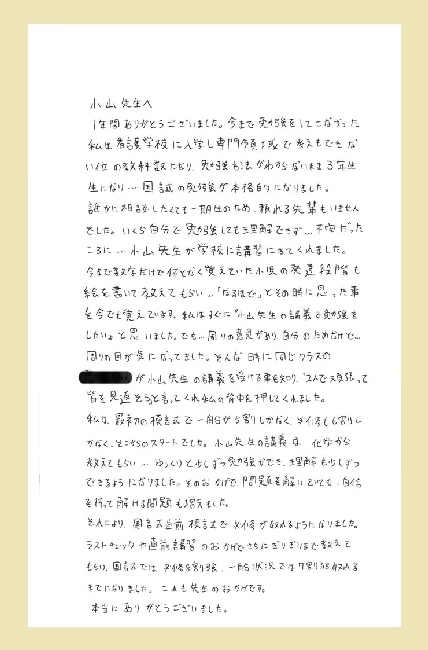 小山先生へ
1年間ありがとうございました。今まで勉強をしてこなかった
私は看護学校に入学し専門領域で考えもできな
い位の教科数になり、勉強方法がわからないまま3年生
生になり…国試の勉強が本格的になりました。
誰かに相談したくても一期生のため、頼れる先輩もいません
でした。いくら自分で勉強しても理解できず…不安だった
ころに…小山先生が学校に講習にきてくれました。
今まで数字だけで何となく覚えていた小児の発達段階も
絵を書いて教えてもらい…「なるほど」とその時に思った事
を今でも覚えています。私はすぐに"小山先生の講義で勉強を
したい"と思いました。でも…周りの意見があり、自分のためだけで…
周りの目が気になってました。そんな時に同じクラスの
が小山先生の講義を受ける事を知り、"2人で頑張って
皆を見返そう"と言ってくれ私の背中を押してくれました。
私は、最初の模試で一般が5割しかなく、必修も6割し
かなく、そこからのスタートでした。小山先生の講義は、化学から
教えてもらい…ゆっくりと少しずつ勉強ができ、理解も少しずつ
できるようになりました。そのおかげで、問題を解いていても、自信
を持って解ける問題も増えました。
それにより、国試直前模試で必修が取れるようになりました。
ラストチェックや直前講習のおかげでさらにぎりぎりまで教えて
もらい、国試では必修9割強、一般状況では7割が取れる
までになりました。これも先生のおかげです。
本当にありがとうございました。